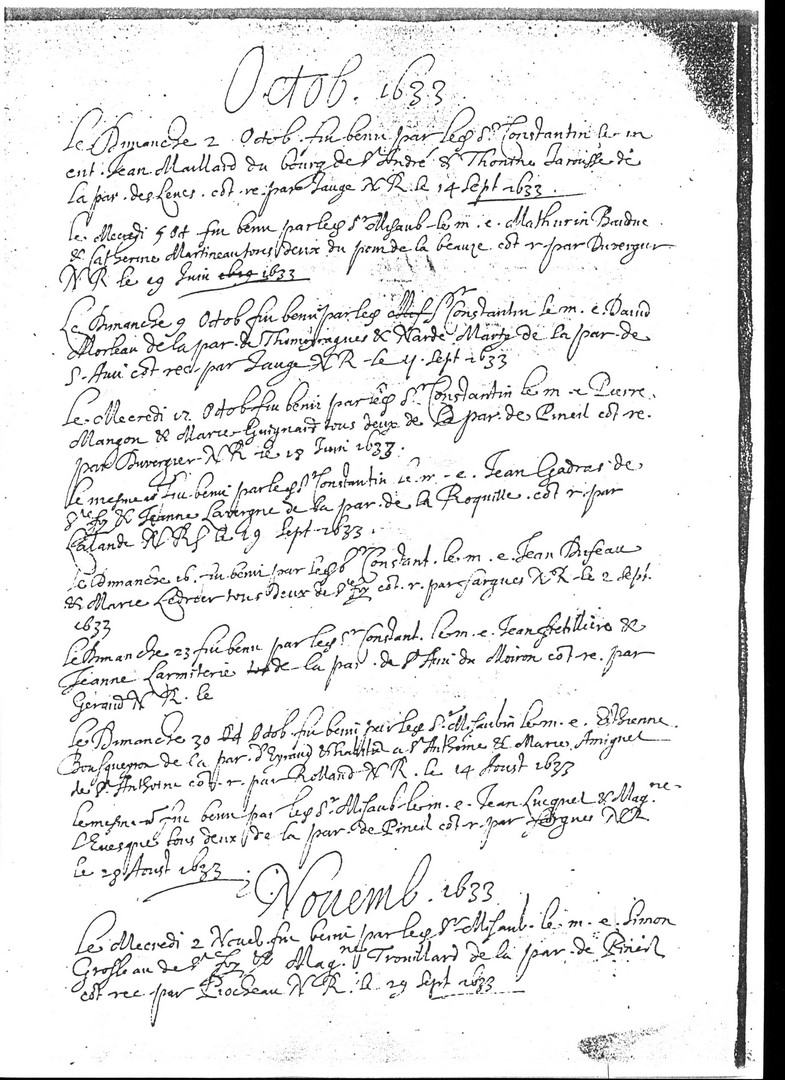 Octob. 1633
Le Dimanche 2 Octob. fut beni par led Sr. Constantin le m
ent. Jean Maillard du bourg de St André & Thonine Jarousse de
la par. des Leues. cot. re. par Jauge N R. le 14 Sept 1633.
le Mecredi 5 Oct fut beni par led Sr Misaub le m. e. Mathurin Baudue
& Catherine Martineau tous deux du pom de la beauze cot r par Duvergier
N R le 19 Juin 1633
Le Dimanche 9 Octob fut beni par led Sr Constantin le m. e. David
Morleau de la par. de & Marde Marty de la par. de
S. Avit cot rec. par Jauge N R. le 11. Sept 1633
Le Mecredi 12 Octob fut beni par led Sr. Constantin le m e Pierre
Mangon & Marie Guignard tous deux de la par. de Pineil cot re.
par Duvergier N R le 18 Juin 1633.
le mesme fut beni par led Sr Constantin le m. e. Jean Gadras de
Ste foy & Jeanne Lavergne de la par. de la Roquille. cot r. par
Lalande N R le 19 Sept 1633.
le Dimanche 16. fut beni par led Sr Constant. le m. e. Jean
& Marie tous deux de Ste foy cot. r. par fargues N R le 2 Sept.
1633
Le Dimanche 23 fut beni par led Sr Constant. le m. e. Jean &
Jeanne Larmiterie de la par. de St Avit du Moiron cot re. par
Geraud N R. le
Le Dimanche 30 Octob. fut beni par led Sr. Misaubin le m. e. Esthienne
Bousqueyron de la par. d'Eyraud & habitte a St Anthoine & Marie Amignet
de St. Anthoine cot. r. par Rolland N R. le 14 Aoust 1633
le mesme fut beni par led Sr Misaub le m. e. Jean Lucquet & Magne
L'Evesque tous deux de la par. de Pineil cot r. par fargues N R
le 28 Aoust 1633
Novemb. 1633
Le Mecredi 2 Noveb. fut beni par led Sr Misaub. le m. e. Simon
Grosleau de Ste foy & Magne Trouillard de la par. de Pineil
cot rec. par Piocheau N R. le 29 Sept 1633